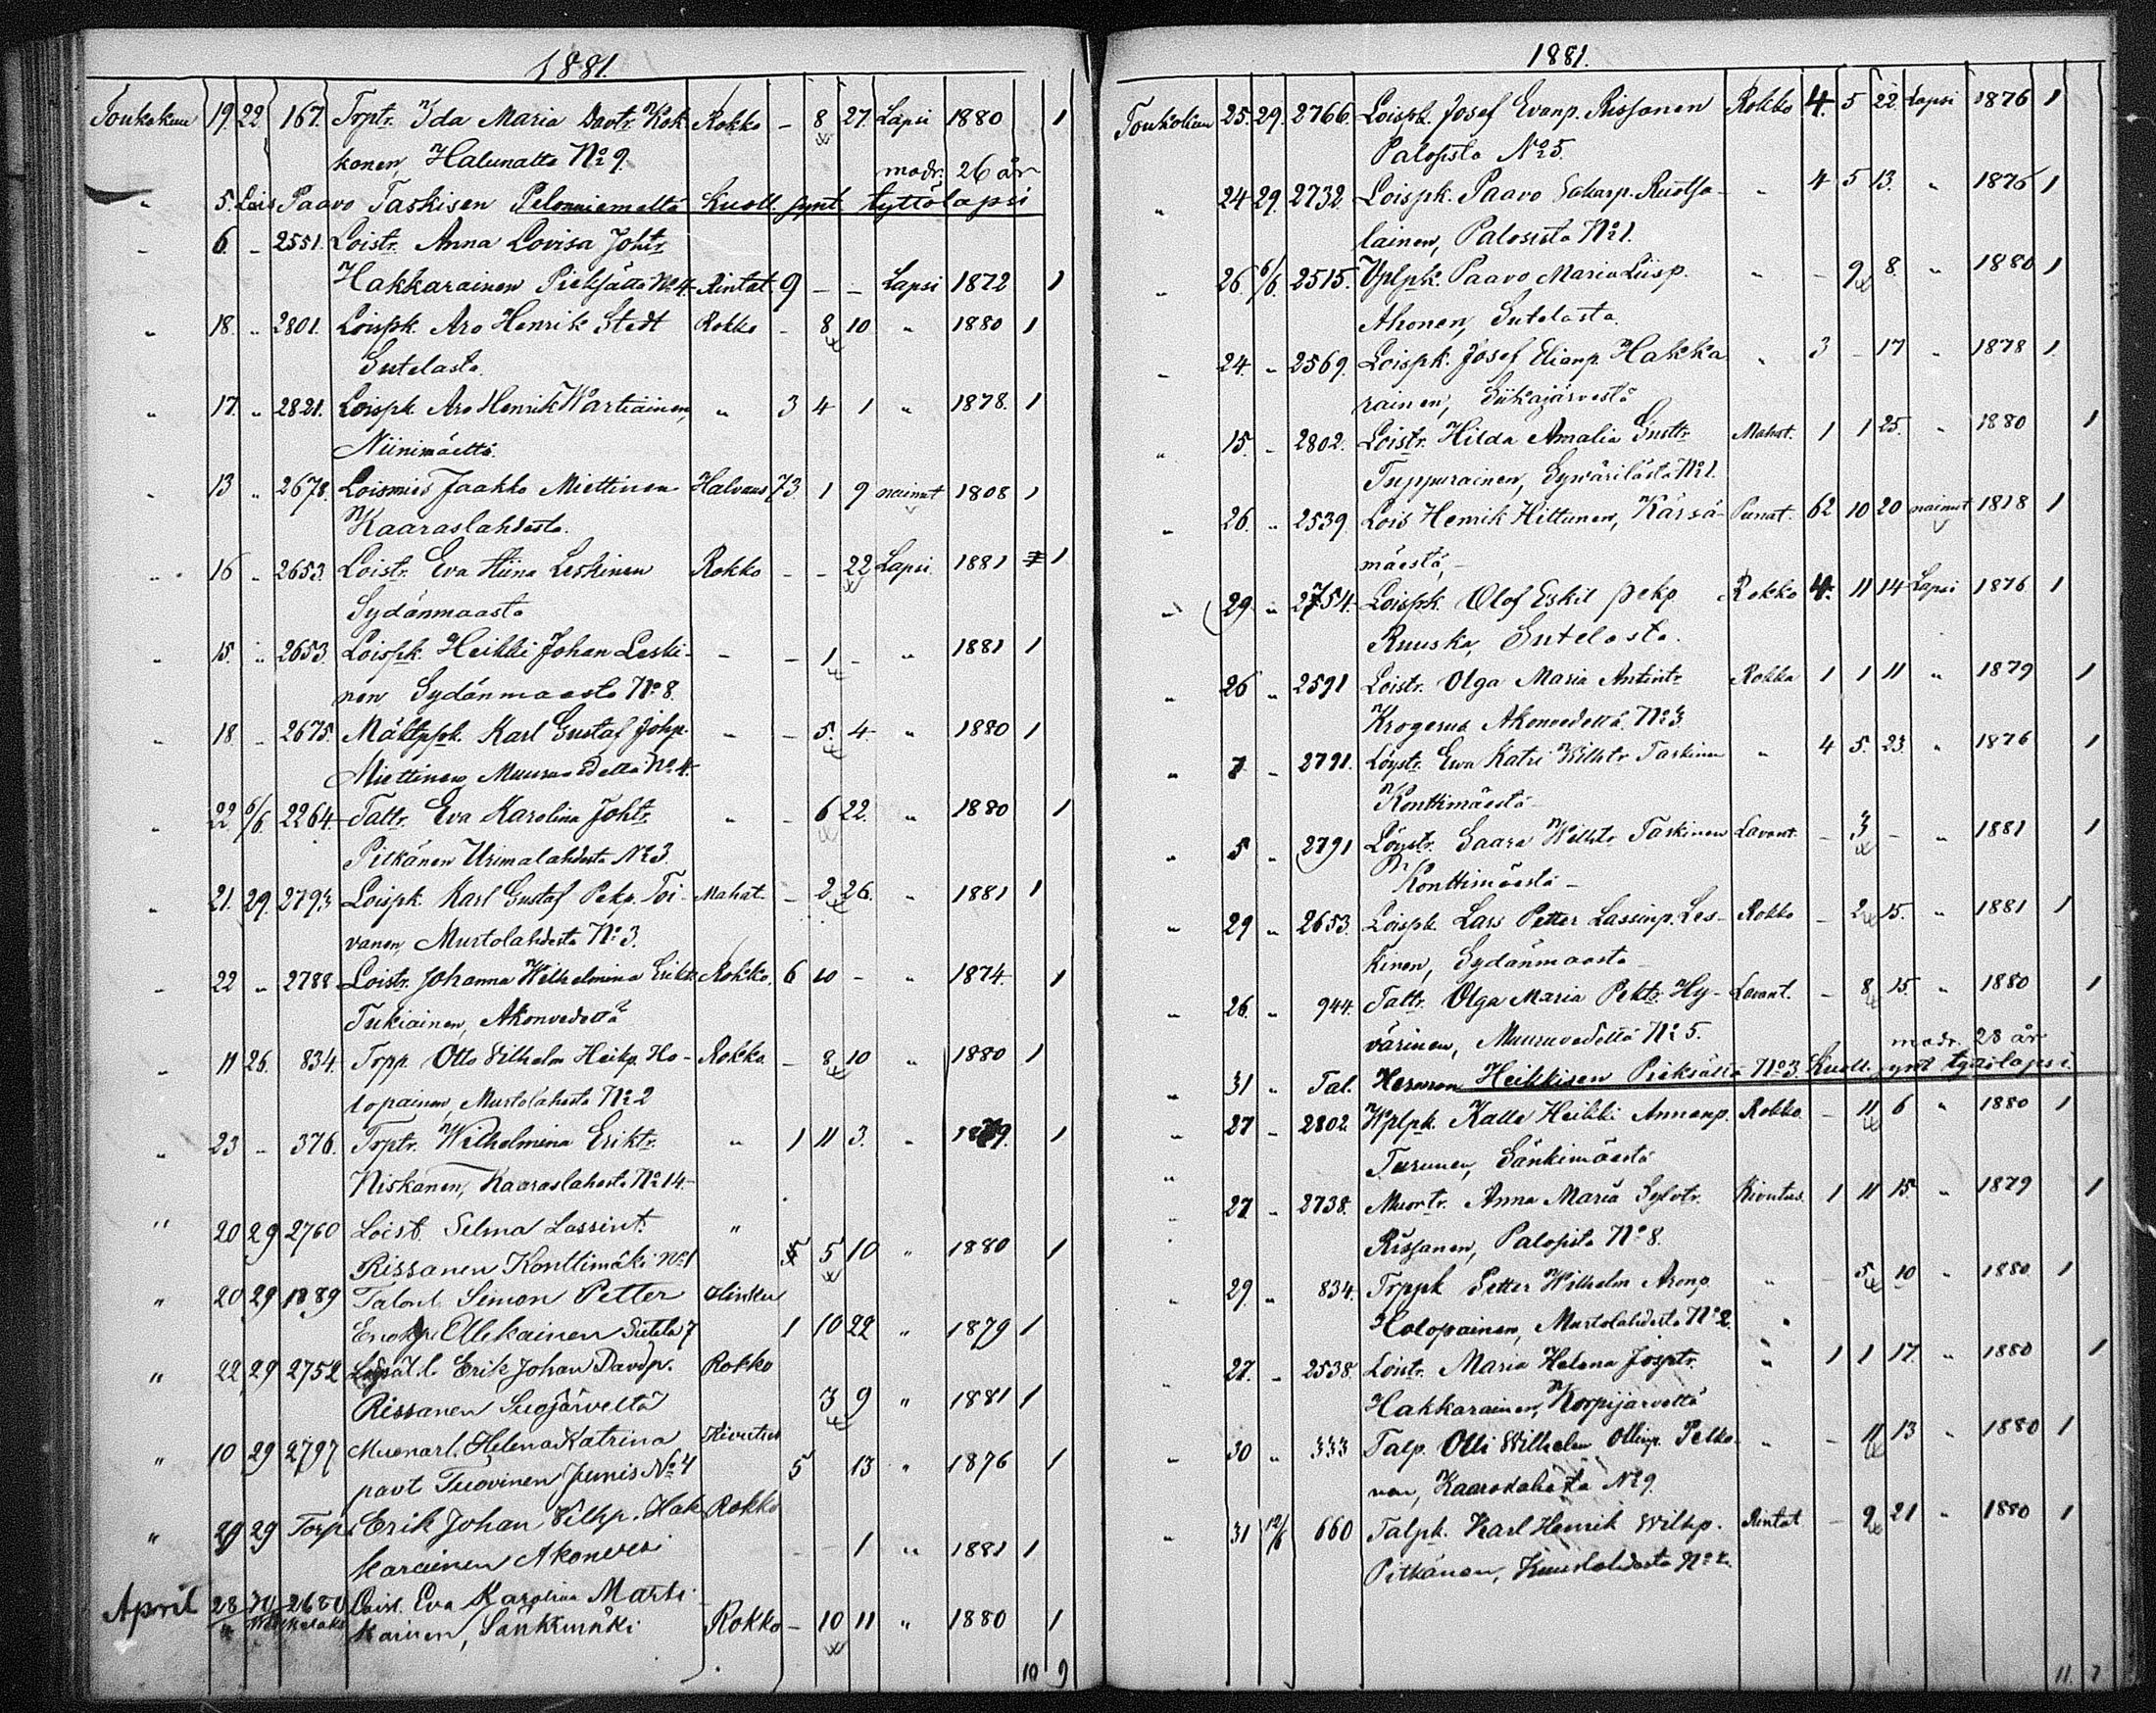 1881.
Toukokuu 19. 22 167. Trptr. Ida Maria Davtr. Kok- Rokko - 8 27. Lapsi 1880 1
konen, Halunalta No 9.
modr. 26 år
" 5. Lois Paavo Taskisen Pelonniemeltä Kuoll. synt. tyttölapsi
" 6. - 2551. Loistr. Anna Lovisa Johtr.
Hakkarainen Pieksältä No 4. Rintat. 9 - - Lapsi 1872 1
" 18. " 2801. Loispk. Aro Henrik Stedt Rokko - 8 10 " 1880 1
Sutelasta.
" 17. " 2821. Loispk. Aro Henrik Wartiainen, " 3 4 1 " 1878. 1
Niinimäeltä.
" 13 " 2678. Loismies Jaakko Miettinen Halvaus 73 1 9 nainut 1808 1
Kaaraslahdesta.
" 16 " 2653. Loistr. Eva Stiina Leskinen Rokko - - 22 Lapsi 1881 1
Sydänmaasta
" 15. " 2653. Loispk. Heikki Johan Leski- " - 1 - " 1881 1
nen Sydänmaasta No 8.
" 18 " 2675. Mäktppk. Karl Gustaf Johp. " - 5. 4. " 1880 1
Miettinen Muuruvedeltä No 4.
" 22 6/6. 2264. Taltr. Eva Karolina Johtr. " - 6 22. " 1880 1
Pitkänen Urimalahdesta No 3.
" 21. 29. 2793 Loispk. Karl Gustaf Pekp. Toi- Mahat. - 2 26. " 1881 1
vanen, Murtolahdesta No 3.
" 22 " 2788 Loistr. Johanna Wilhelmina Eriktr. Rokko. 6 10 - " 1874. 1
Tukiainen, Akonvedeltä
" 11 26. 834. Trpp. Otto Vilhelm Heikp. Ho- Rokko - 8 10 " 1880 1
lopainen, Murtolahesta No 2
" 23 " 376. Trptr. Wilhelmina Eriktr. " 1 11 3. " 1879. 1
Niskanen, Kaaraslahesta No 14.
" 20 29 2760 Loist. Selma Lassint. "
Rissanen Konttimäki No 1 5 10 " 1880 1
" 20 29 1889 Talont. Simon Petter Hinku
Erickp. Ollikainen Sutela 7 1 10 22 " 1879 1
" 22 29 2752 Erik Johan Davdp. Rokko
Rissanen Suojärveltä 3 9 " 1881 1
" 10 29 2797 Muonarl. Helena Katrina Kivutus
pavt Tuovinen Junis No 4 5 13 " 1876 1
" 29 29 Torp. Erik Johan Vilhp. Hak- Rokko
karainen Akonvesi - - 1 " 1881 1
April 28 2680 Loist. Eva Karolina Marti-
kainen, Sänkimäki Rokko - 10 11 " 1880 1
10 9
1881.
Toukokuu 25. 29. 2766. Loispk. Josef Evanp. Rissanen Rokko 4. 5 22. Lapsi 1876 1
Palosista No 5.
" 24 29. 2732. Loispk. Paavo Sakarp. Ruotsa- " 4 5 13. " 1876 1
lainen, Palosista No 1.
" 26. 6/6. 2515. Vplpk. Paavo Maria Liisp. " - 9 8. " 1880 1
Ahonen, Sutelasta.
" 24. " 2569. Loispk. Josef Elianp. Hakka- " 3 - 17 " 1878 1
rainen, Siikajärvestä
" 15. " 2802. Loistr. Hilda Amalia Gusttr. Mahat. 1 1 25. " 1880 1
Tuppurainen, Sywärilästä No 1.
" 26. " 2539. Lois Henrik Hittunen, Kärsä- Punat. 62 10 20 nainut 1818 1
mäestä,
" 29. " 2754. Loispk. Olof Eskil Pekp. Rokko 4. 11 14 Lapsi 1876 1
Ruuska, Sutelasta.
" 26 " 2591 Loistr. Olga Maria Antintr. Rokko 1 1 11 " 1879 1
Krogerus Akonvedeltä No 3
" 7 " 2791. Löystr. Ewa Katri Wilhtr. Taskinen " 4 5. 23. " 1876 1
Konttimäestä
" 5 " 2791 Löystr. Saara Wilhtr. Taskinen Lavant. - 3 - " 1881 1
Konttimäestä -
" 29 " 2653. Loispk. Lars Petter Lassinp. Les- Rokko - 2 15. " 1881 1
kinen, Sydänmaasta
" 26. " 944. Taltr. Olga Maria Pektr. Hy- Lavant. - 8 15. " 1880 1
värinen, Muuruvedeltä No 5.
modr. 28 år
" 31 " Tal. Herman Heikkisen Pieksältä No 3. Kuoll. synt. tyttölapsi.
" 27 " 2802. Wplpk. Kalle Heikki Annanp. Rokko - 11 6 " 1880 1
Turunen, Sänkimäestä
" 27 " 2738. Muontr. Anna Maria Sylvtr. Kivutus. 1 11 15. " 1879 1
Rissanen, Palosista No 8.
" 29. " 834. Trppk. Petter Wilhelm Aronp. " - 5 10 " 1880. 1
Holopainen, Murtolahdesta No 2.
" 27. " 2538. Loistr. Maria Helena Josptr. " 1 1 17. " 1880 1
Hakkarainen, Korpijärveltä
" 30 " 333 Talp. Olli Wilhelm Ollinp. Pelko- " - 11 13 " 1880 1
nen, No 9.
" 31 12/6 660 Talpk. Karl Henrik Wilhp. Rintat - 9 21 " 1880 1
Pitkänen,
11. 7